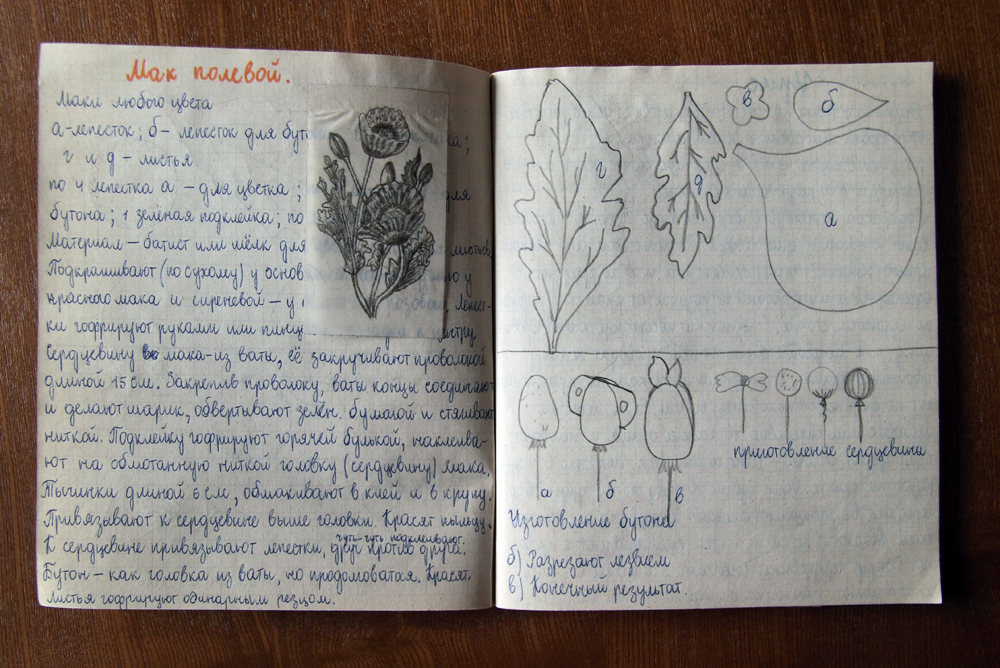 Мак полевой.
Маки любого цвета
а-лепесток; б- лепесток для бут ка;
г и д - листья
по 4 лепестка а - для цветка ; для
бутона; 1 зелёная подклейка; по
Материал - батист или шёлк для листьев.
Подкрашивают (по сухому) у основ у
красного мака и сиреневой - у розовая. Лепест-
ки гофрируют руками или пинц
Сердцевину мака-из ваты, её закручивают проволокой
длиной 15 см. Закрепив проволоку, ваты концы соединяют
и делают шарик, обвёртывают зелён. бумагой и стягивают
ниткой. Подклейку гофрируют горячей булькой, наклеива-
ют на обмотанную ниткой головку (сердцевину) мака.
Тычинки длиной 6 см, обмакивают в клей и в крупу.
Привязывают к сердцевине выше головки. Красят пыльцу.
чуть-чуть подклеивают.
К сердцевине привязывают лепестки, друг против друга.
Бутон - как головка из ваты, но продолговатая. Красят.
листья гофрируют одинарным резцом.
г
д
в
б
а
а
б
в
приготовление сердцевины
Изготовление бутона
б) Разрезают лезвием
в) Конечный результат.